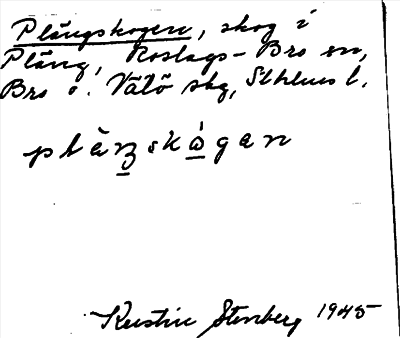 Plängskogen, skog i
Pläng, Roslags-Bro sn,
Bro o. Vätö skg, Sthlms l.
plä̀ŋskógen
Kerstin Stenberg 1945